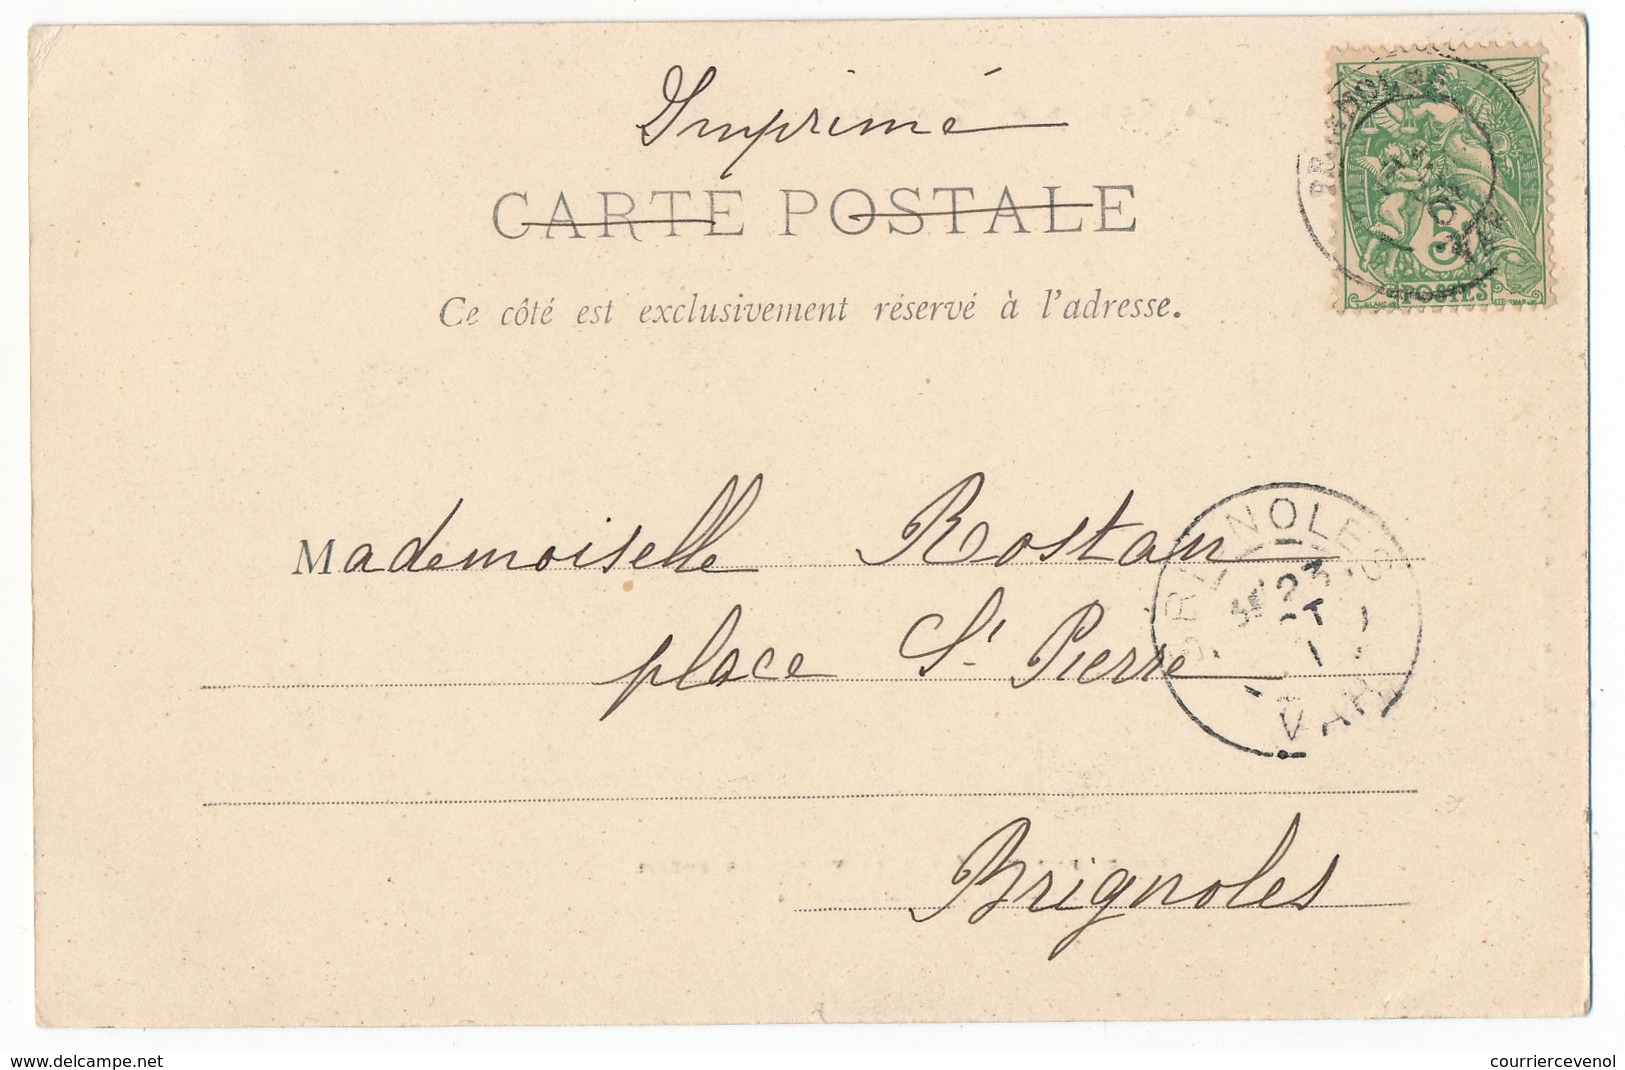 Imprimé
CARTE POSTALE
Ce côté est exclusivement réservé à l'adresse.
5
POSTES
Mademoiselle Rostan
place St Pierre
Brignoles
BRIGNOLES
23
VAR
delcampe.net
courriercevenol